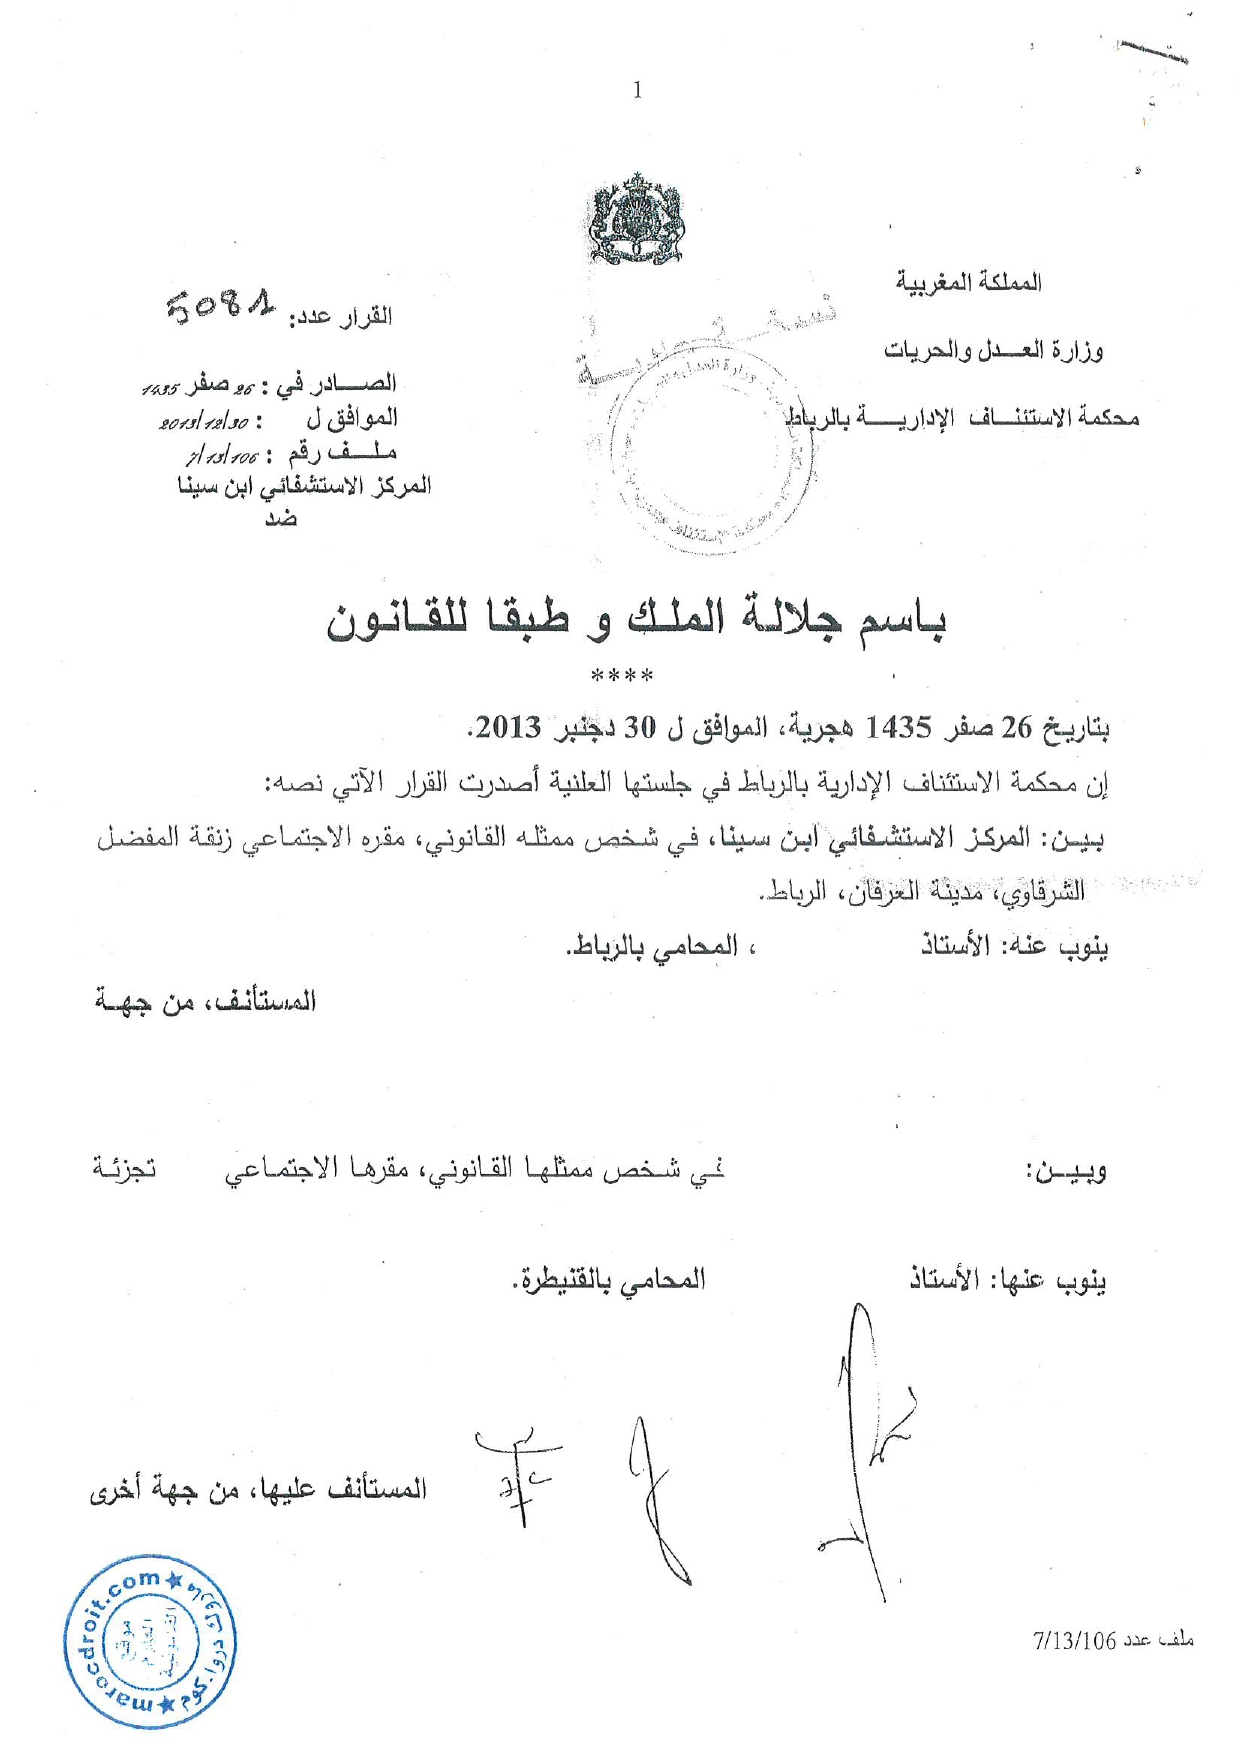 1
المملكة المغربية
وزارة العدل والحريات
محكمة الاستئناف الإدارية بالرباط
القرار عدد: 5081
الصادر في : 26 صفر 1435
الموافق ل : 2013/12/30
ملف رقم : 7/13/106
المركز الاستشفائي ابن سينا
ضد
باسم جلالة الملك و طبقا للقانون
****
بتاريخ 26 صفر 1435 هجرية، الموافق ل 30 دجنبر 2013.
إن محكمة الاستئناف الإدارية بالرباط في جلستها العلنية أصدرت القرار الآتي نصه:
بين: المركز الاستشفائي ابن سينا، في شخص ممثله القانوني، مقره الاجتماعي زنقة المفضل
الشرقاوي، مدينة العرفان، الرباط.
ينوب عنه: الأستاذ ، المحامي بالرباط.
المستأنف، من جهة
وبين: في شخص ممثلها القانوني، مقرها الاجتماعي تجزئة
ينوب عنها: الأستاذ المحامي بالقنيطرة.
المستأنف عليها، من جهة أخرى
marocdroit.com
ملف عدد 7/13/106